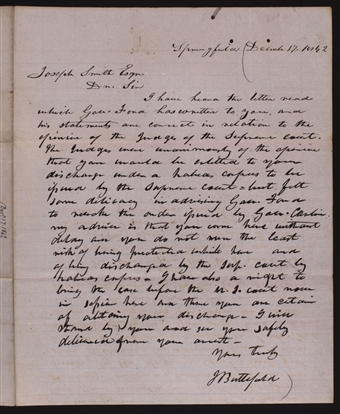 Springfield Decemb 17. 1842
Joseph Smith Esqr
Dear Sir
I have heard the letter read
which Gov- Ford has written to you, and
his statements are correct in relation to the
opinion of the Judges of the Supreme court.
The Judges were unanimously of the opinion
that you would be entitled to your
discharge under a Habeas corpus to be
issued by the Supreme Court - but felt
some delicacy in advising Gov- Ford
to revoke the order issued by Gov- Carlin.
my advice is that you come here without
delay and you do not run the least
risk of being protected while here and
of being discharged by the Sup- court by
Habeas corpus - I have also a right to
bring the case before the U. S. court now
in session here and there you are certain
of obtaining your discharge - I will
stand by you and see you safely
delivered from your arrest.
Yours truly
J Butterfield